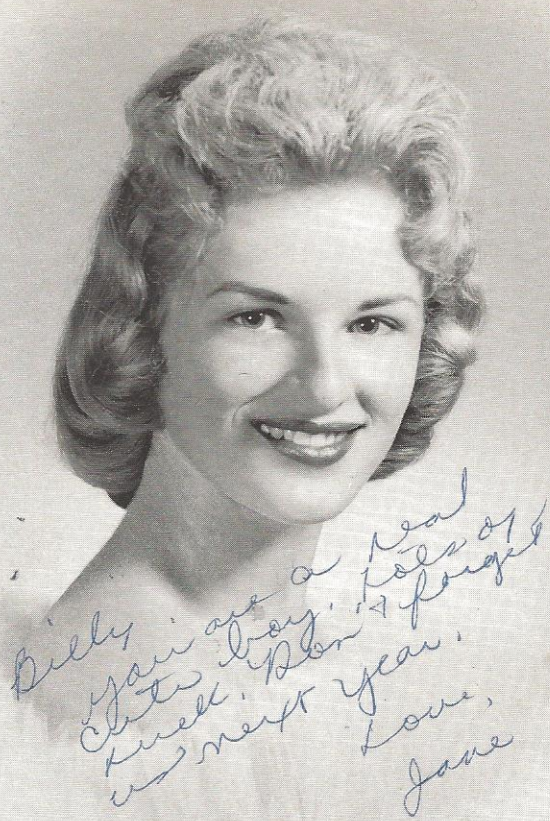 Billy,
you are a real
cute boy. Lots of
luck. Don't forget
us next year.
Love,
Jane